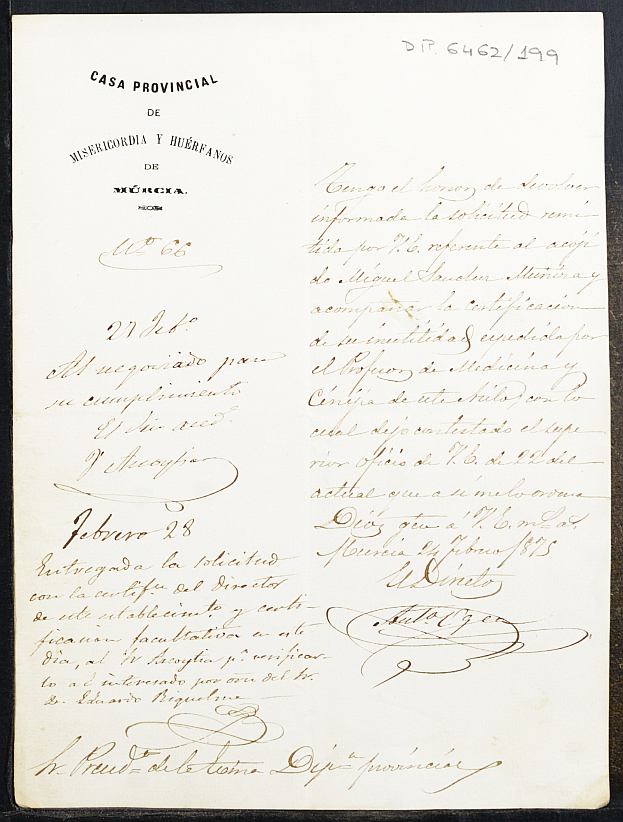 DIP. 6462/199
CASA PROVINCIAL
DE
MISERICORDIA Y HUÉRFANOS
DE
MÚRCIA.
Nº 66
Tengo el honor de devolver
informada la solicitud remi-
tida por V.E. referente al acoji-
do Miguel Sanchez Muñóz y
acompañar la certificacion
de su inutilidad espedida por
el Profesor de Medicina y
Cirujia de este Asilo, con lo
cual dejo contestado el supe-
rior oficio de V.E. de 22 del
actual que asi me lo ordena
Dios gue á V.E. ms. as.
Murcia 24 Febrero 1875
El Director
27 Febº
Al negociado para
su cumplimiento
El
Febrero 28
Entregada la solicitud
con la certifn. del Director
de este establecimto. y certi-
ficacion facultativa en este
dia, al Sr. Ascoytia pª. verificar-
lo al interesado por orn del Sr.
Dn. Eduardo Riquelme
Sr. Presidte. de la Excma Dipon. provincial